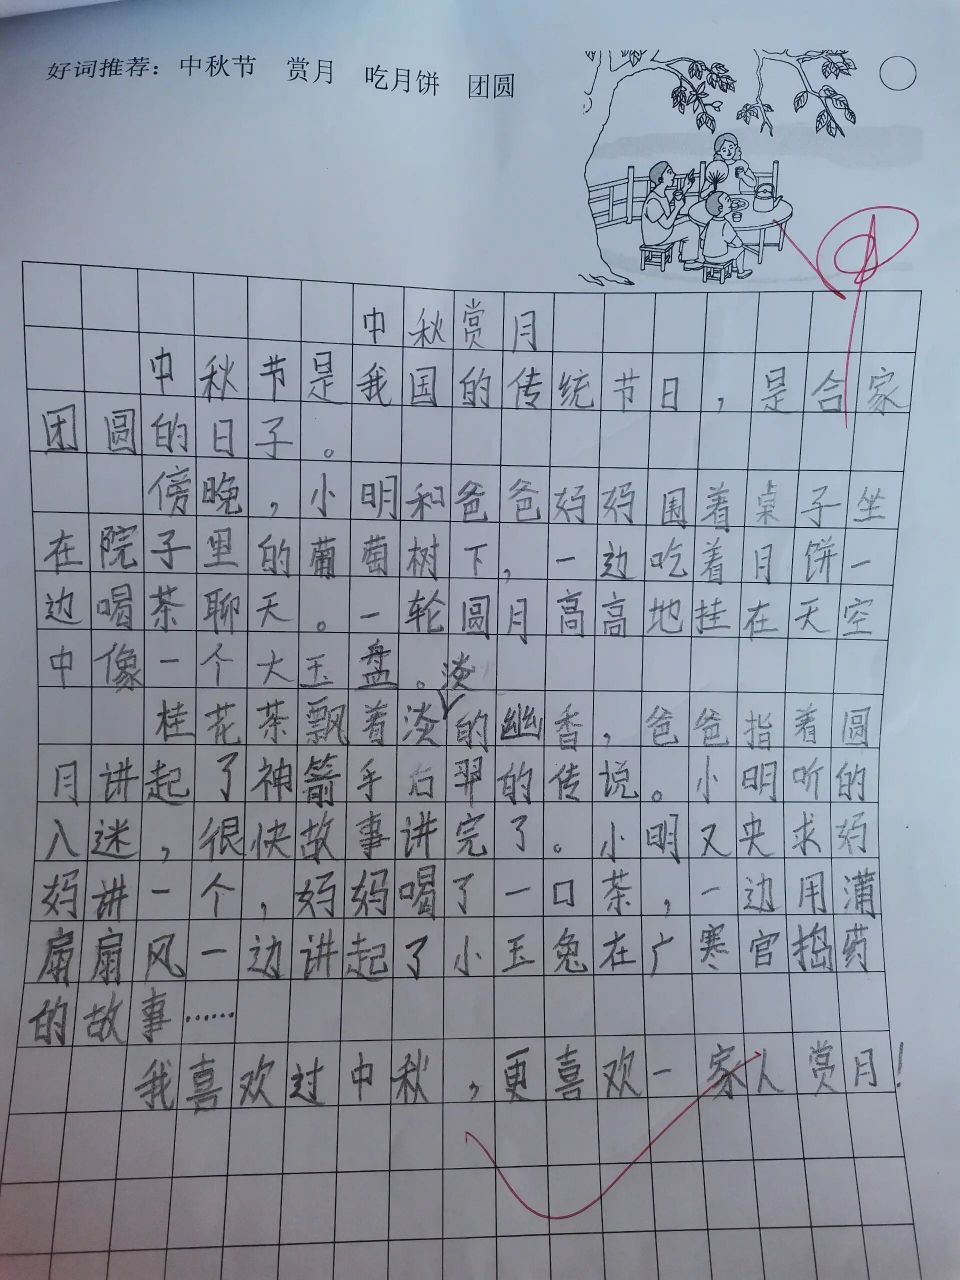 好词推荐：中秋节 赏月 吃月饼 团圆
中秋赏月
中秋节是我国的传统节日，是合家
团圆的日子。
傍晚，小明和爸爸妈妈围着桌子坐
在院子里的葡萄树下，一边吃着月饼一
边喝茶聊天。一轮圆月高高地挂在天空
中像一个大玉盘。
桂花茶飘着淡淡的幽香，爸爸指着圆
月讲起了神箭手后羿的传说。小明听的
入迷，很快故事讲完了。小明又央求妈
妈讲一个，妈妈喝了一口茶，一边用蒲
扇扇风一边讲起了小玉兔在广寒宫捣药
的故事……
我喜欢过中秋，更喜欢一家人赏月！